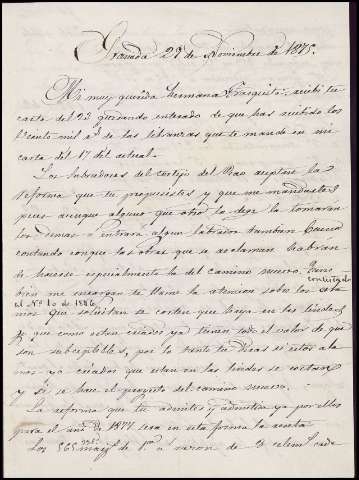 Granada 29 de Noviembre de 1875.
Mi muy querida Hermana Frasquita: recibi tu
carta del 23 quedando enterado de que has recibido los
veinte mil r.s de las libranzas que te mande en mi
carta del 17 del actual.
Los labradores del cortijo del Rao aceptan la
reforma que tu propusistes y que me mandastes
pues aunque alguno que otro la deje la tomaran
los demas o entrara algun labrador tambien bueno
contando con que las obras que se reclaman se abran
de hacerse especialmente la del camino nuevo. Tam
bien me encargan te llame la atencion sobre los ala
contiguo al
el Nº 10 de 1876
mos que solicitan se corten que haya en las lindes
que como estan criados ya tienen todo el valor de que
son subceptibles, por lo tanto tu diras si estos ala
mos ya criados que estan en las lindes se cortan
y si se hace el proyecto del camino nuevo.
La reforma que tu admites y admitida ya por ellos
para el año de 1877 sera en esta forma la renta
Los 565 marj.s de 1.ª a razon de 3 celem.s cada